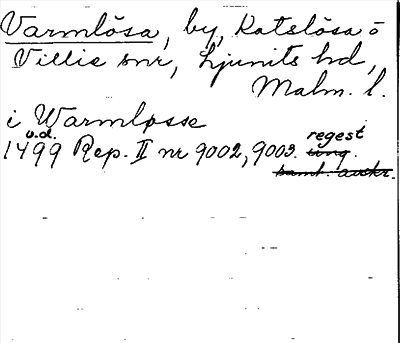 Varmlösa, by, Katslösa o
Villie snr, Ljunits hd,
Malm. l.
i Warmløsse
u.d.
1499 Rep. II nr 9002, 9003. regest
orig.
saml. avskr.